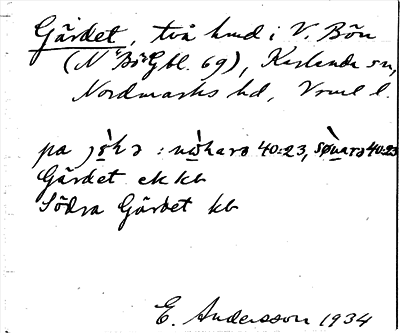 Gärdet, två hmd i V. Bön
(N Bö Gbl. 69), Karlanda sn,
Nordmarks hd, Vrml l.
pa jö̀ʒə : nö̀ʒarə 40:23, sø̀narə 40:23
Gärdet ek kb
Södra Gärdet kb
E. Andersson 1934